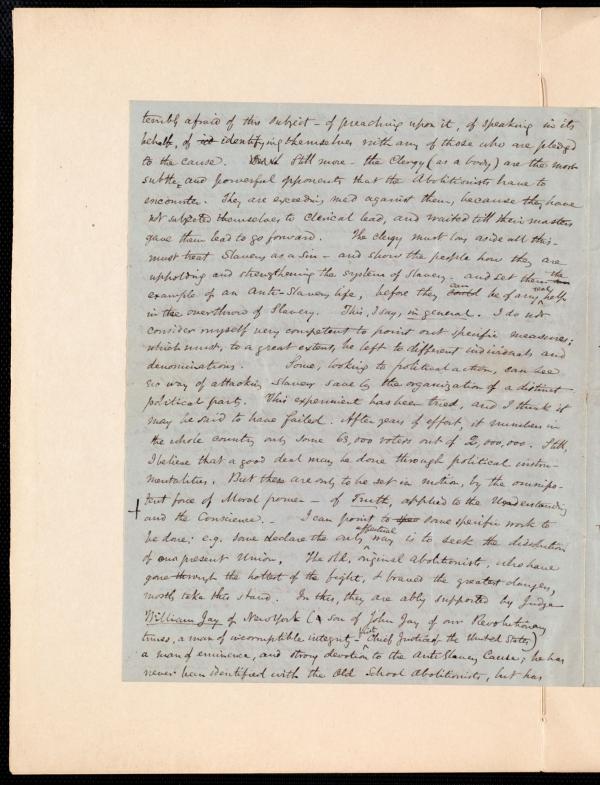 terribly afraid of this subject - of preaching upon it, of speaking in its
behalf, of identifying themselves with any of those who are pledged
to the cause. Still more - the Clergy (as a body) are the most
subtle, and powerful opponents that the Abolitionists have to
encounter. They are exceeding mad against them, because they have
not subjected themselves to Clerical lead, and waited till their masters
gave them lead to go forward. The clergy must lay aside all this -
must treat Slavery as a sin - and show the people how they are
upholding and strengthening the system of Slavery - and set them the
example of an Anti-Slavery life, before they can be of any real help
in the overthrow of Slavery. This, I say, in general. I do not
consider myself very competent to point out specific measures;
which must, to a great extent, be left to different individuals and
denominations. Some, looking to political action, can see
no way of attacking Slavery save by the organization of a distinct
political party. This experiment has been tried, and I think it
may be said to have failed. After years of effort, it numbers in
the whole country only some 63,000 voters out of 2,000,000. Still,
I believe that a good deal may be done through political instru-
mentalities. But these are only to be set in motion, by the omnipo-
tent force of Moral power - of Truth, applied to the Understanding
and the Conscience. - I can point to some specific work to
be done; e.g. some declare the only effectual way is to seek the dissolution
of our present Union. The old, original abolitionists, who have
gone through the hottest of the fight, & braved the greatest dangers,
mostly take this stand. In this, they are ably supported by Judge
William Jay of New York (a son of John Jay of our Revolutionary
times, a man of incorruptible integrity - first Chief Justice of the United States)
a man of eminence, and strong devotion to the Anti Slavery Cause; he has
never been identified with the Old School Abolitionists, but has